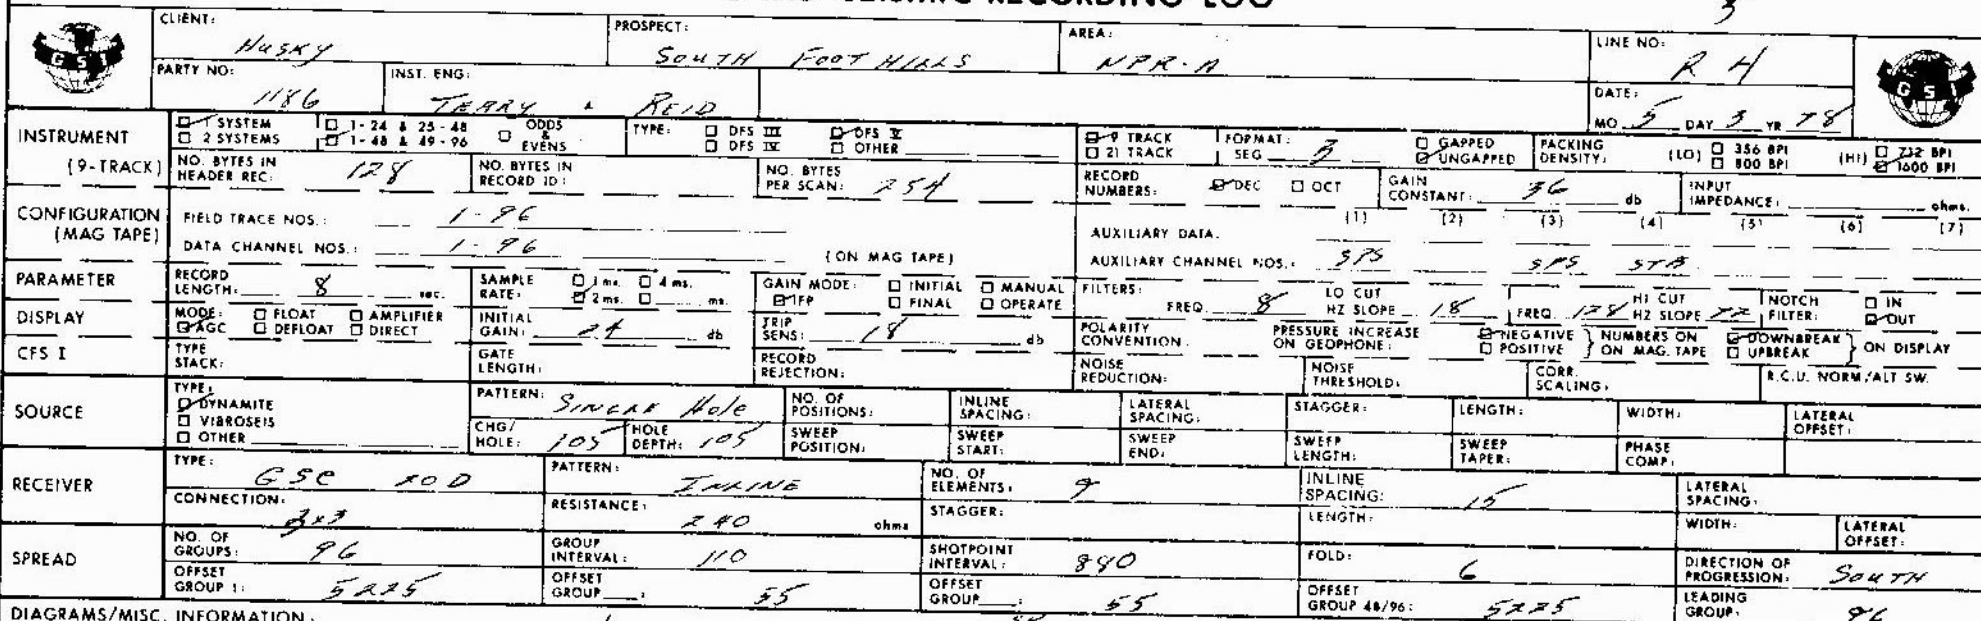 RECORDING LOG
3
GSI
CLIENT: HUSKY
PROSPECT: SOUTH FOOTHILLS
AREA: NPR-A
LINE NO: R H
GSI
PARTY NO: 1186
INST. ENG: TERRY & REID
DATE: MO. 5 DAY 3 YR 78
INSTRUMENT (9-TRACK)
1 SYSTEM
2 SYSTEMS
1-24 & 25-48
1-48 & 49-96
ODDS & EVENS
TYPE: DFS III DFS V
DFS IV OTHER
9 TRACK
21 TRACK
FORMAT: SEG B
GAPPED
UNGAPPED
PACKING DENSITY: (LO) 356 BPI 800 BPI (HI) 712 BPI 1600 BPI
NO. BYTES IN HEADER REC: 128
NO. BYTES IN RECORD ID:
NO. BYTES PER SCAN: 254
RECORD NUMBERS: DEC OCT
GAIN CONSTANT: 36 db
INPUT IMPEDANCE: ohms.
CONFIGURATION (MAG TAPE)
FIELD TRACE NOS.: 1-96
DATA CHANNEL NOS.: 1-96 (ON MAG TAPE)
(1) (2) (3) (4) (5) (6) (7)
AUXILIARY DATA.
AUXILIARY CHANNEL NOS.: SPS SPS STB
PARAMETER
RECORD LENGTH: 8 sec.
SAMPLE RATE: 1 ms. 4 ms. 2 ms. ms.
GAIN MODE: INITIAL MANUAL
IFP FINAL OPERATE
FILTERS: FREQ. 8 LO CUT HZ SLOPE 18 FREQ. 128 HI CUT HZ SLOPE 72
NOTCH FILTER: IN OUT
DISPLAY
MODE: FLOAT AMPLIFIER
AGC DEFLOAT DIRECT
INITIAL GAIN: 24 db
TRIP SENS: 18 db
POLARITY CONVENTION: PRESSURE INCREASE ON GEOPHONE: NEGATIVE POSITIVE } NUMBERS ON ON MAG. TAPE DOWNBREAK UPBREAK } ON DISPLAY
CFS I
TYPE STACK:
GATE LENGTH:
RECORD REJECTION:
NOISE REDUCTION:
NOISE THRESHOLD:
CORR. SCALING:
R.C.U. NORM/ALT SW.
SOURCE
TYPE: DYNAMITE
VIBROSEIS
OTHER
PATTERN: SINGLE Hole
NO. OF POSITIONS:
INLINE SPACING:
LATERAL SPACING:
STAGGER:
LENGTH:
WIDTH:
LATERAL OFFSET:
CHG/HOLE: 105
HOLE DEPTH: 105
SWEEP POSITION:
SWEEP START:
SWEEP END:
SWEEP LENGTH:
SWEEP TAPER:
PHASE COMP:
RECEIVER
TYPE: GSC 20D
PATTERN: INLINE
NO. OF ELEMENTS: 9
INLINE SPACING: 15
LATERAL SPACING:
CONNECTION: 3x3
RESISTANCE: 240 ohms
STAGGER:
LENGTH:
WIDTH:
LATERAL OFFSET:
SPREAD
NO. OF GROUPS: 96
GROUP INTERVAL: 110
SHOTPOINT INTERVAL: 880
FOLD: 6
DIRECTION OF PROGRESSION: SOUTH
OFFSET GROUP 1: 5225
OFFSET GROUP : 55
OFFSET GROUP : 55
OFFSET GROUP 48/96: 5225
LEADING GROUP: 96
DIAGRAMS/MISC. INFORMATION: